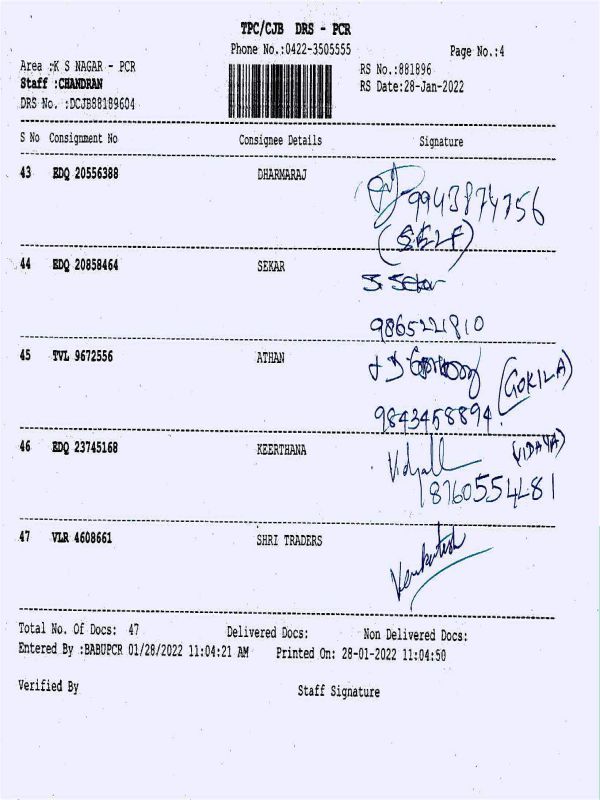 TPC/CJB DRS - PCR
Phone No.:0422-3505555
Page No.:4
Area :K S NAGAR - PCR
RS No.:881896
Staff :CHANDRAN
RS Date:28-Jan-2022
DRS No. :DCJB88189604
S No Consignment No Consignee Details Signature
43 EDQ 20556388 DHARMARAJ
9943874756
(SELF)
44 EDQ 20858464 SEKAR
S. Sekar
9865221810
45 TVL 9672556 ATHAN
(GOKILA)
9843458894
46 EDQ 23745168 KEERTHANA
(VIDHYA)
8760554481
47 VLR 4608661 SHRI TRADERS
Venkatesh
Total No. Of Docs: 47 Delivered Docs: Non Delivered Docs:
Entered By :BABUPCR 01/28/2022 11:04:21 AM Printed On: 28-01-2022 11:04:50
Verified By Staff Signature